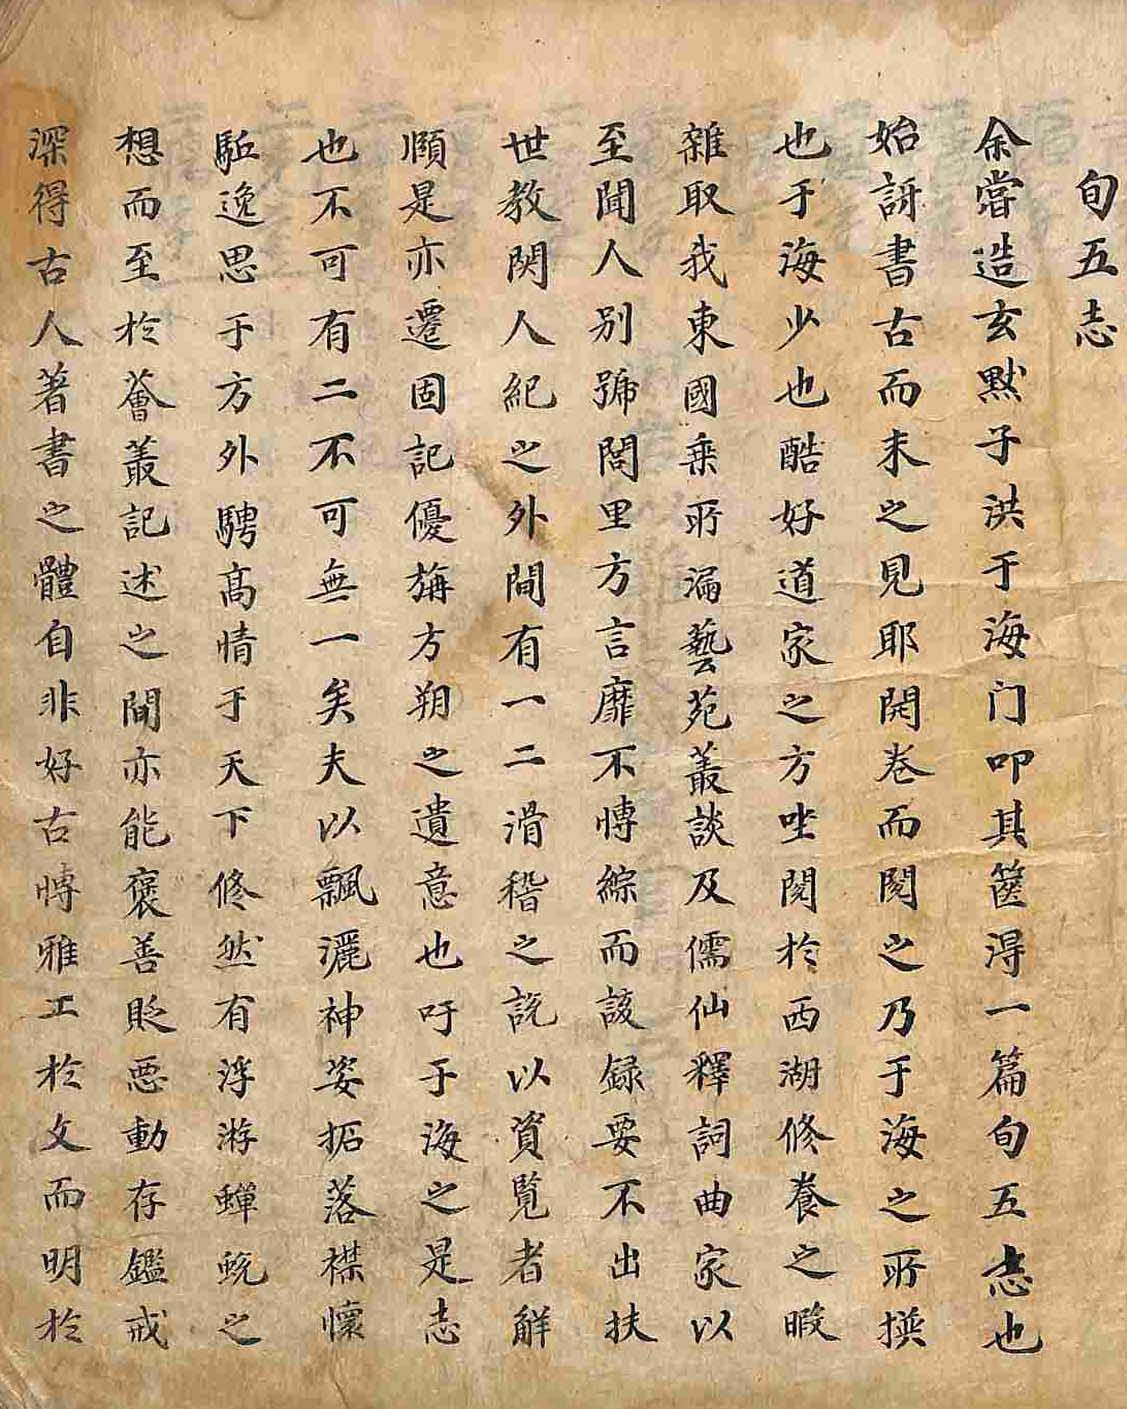 旬五志
余嘗造玄默子洪于海门叩其篋淂一篇旬五志也
始訝書古而未之見耶開卷而閱之乃于海之所撰
也于海少也酷好道家之方坐閱於西湖修養之暇
雜取我東國乗所漏藝苑叢談及儒仙釋詞曲家以
至聞人别號閭里方言靡不愽綜而該録要不出扶
世教関人紀之外間有一二滑稽之說以資覧者觧
頥是亦遷固記優旃方朔之遺意也吁于海之是志
也不可有二不可無一矣夫以飄灑神姿拓落襟懷
駈逸思于方外騁髙情于天下修然有浮游蟬蛻之
想而至於薈叢記述之間亦能褒善貶悪動存鑑戒
深得古人著書之體自非好古愽雅工於文而明於